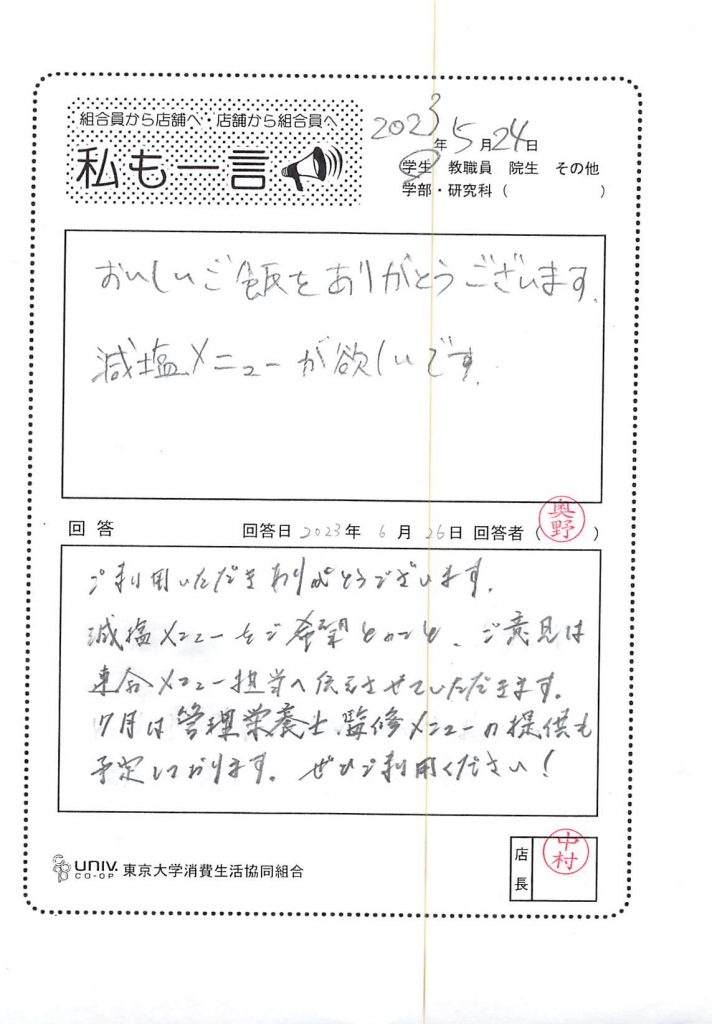 組合員から店舗へ・店舗から組合員へ
私も一言
2023年5月24日
学生 教職員 院生 その他
学部・研究科（ ）
おいしいご飯をありがとうございます。
減塩メニューが欲しいです。
回答 回答日 2023年 6月 26日 回答者（奥野）
ご利用いただきありがとうございます。
減塩メニューをご希望とのこと、ご意見は
東命メニュー担当へ伝えさせていただきます。
7月は管理栄養士監修メニューの提供も
予定しております。ぜひご利用ください！
UNIV. CO-OP 東京大学消費生活協同組合
店長 中村